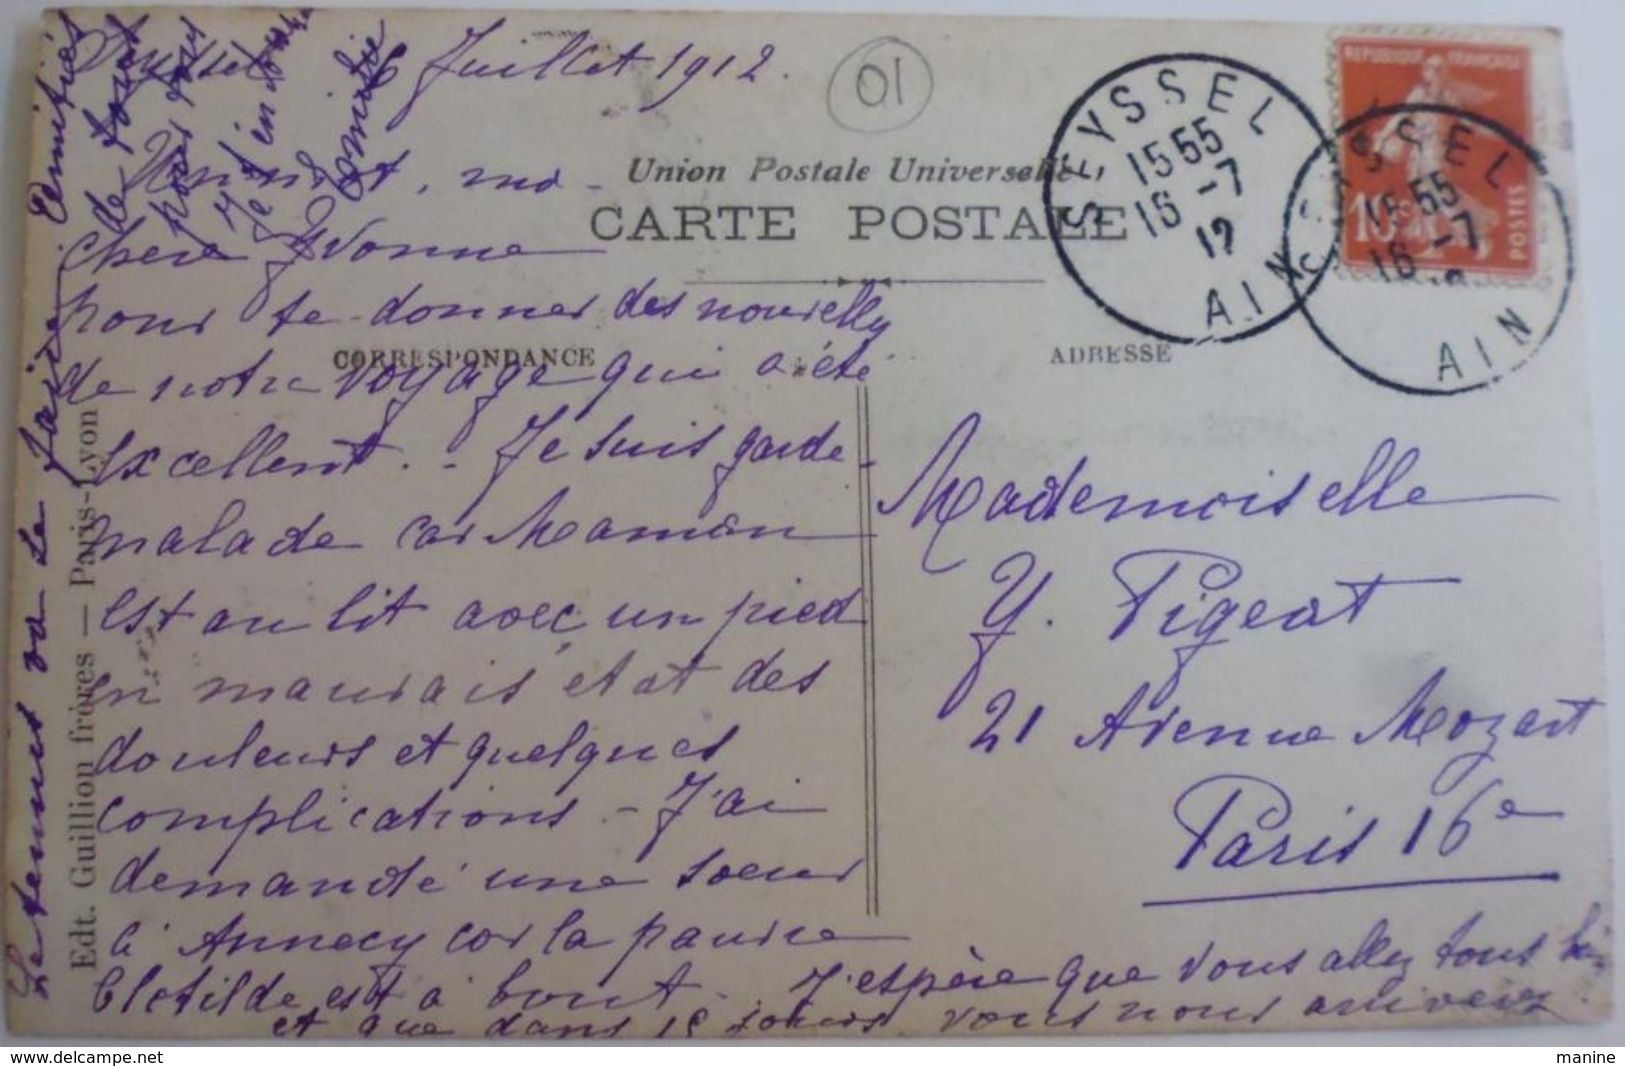 Seyssel 16 Juillet 1912.
01
Un mot, ma
chère Yvonne
pour te donner des nouvelles
de notre voyage qui a été
excellent. - Je suis garde-
malade car Maman
est au lit avec un pied
en mauvais état des
douleurs et quelques
complications - J'ai
demandé une soeur
à Annecy car la pauvre
Clotilde est à bout. J'espère que vous allez tous bien
et que dans 15 jours vous nous arriverez
Le temps va se
Amitiés
de tous
pour tous
Je t'embrasse
Union Postale Universelle
CARTE POSTALE
CORRESPONDANCE
ADRESSE
Edt. Guillion frères — Paris-Lyon
SEYSSEL
15 55
16 -7
12
AIN
SEYSSEL
15 55
16 -7
AIN
REPUBLIQUE FRANÇAISE
10c
POSTES
Mademoiselle
Y. Pigeat
21 Avenue Mozart
Paris 16e
delcampe.net
manine